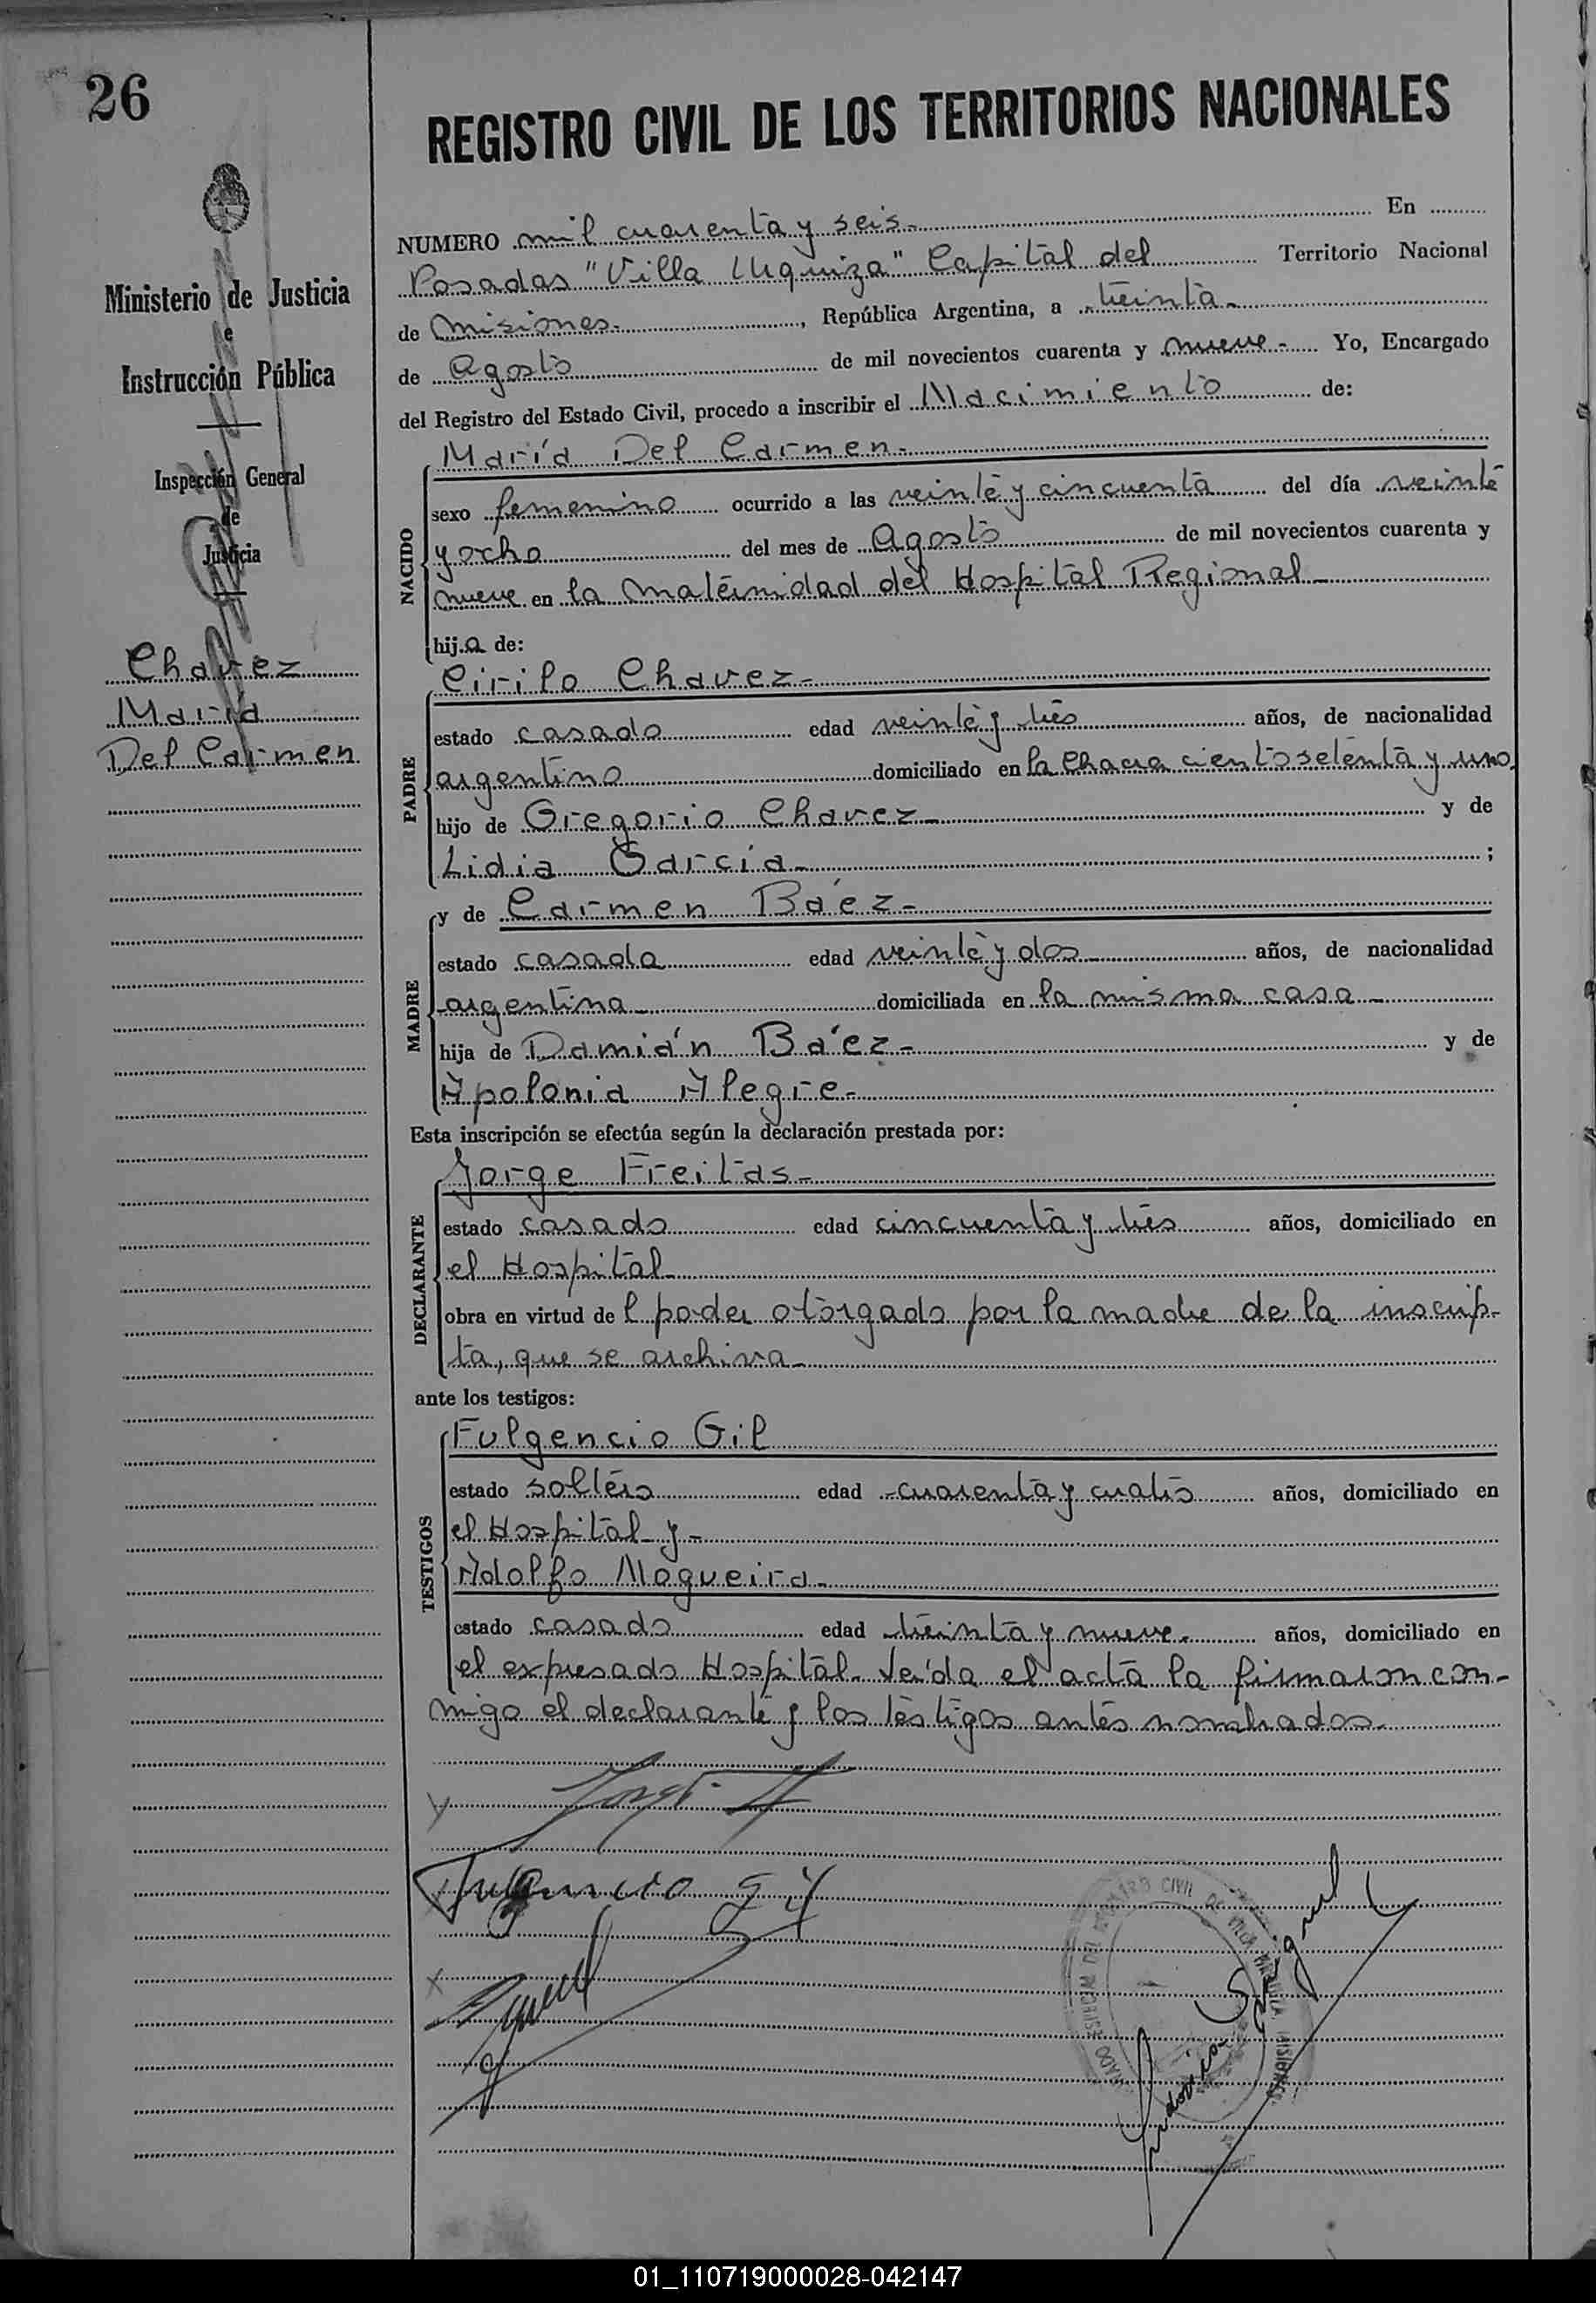 26
REGISTRO CIVIL DE LOS TERRITORIOS NACIONALES
Ministerio de Justicia
e
Instrucción Pública
Inspección General
de
Justicia
Chavez
María
Del Carmen
NUMERO mil cuarenta y seis.- En
Posadas "Villa Urquiza" Capital del Territorio Nacional
de Misiones.-, República Argentina, a treinta.-
de Agosto de mil novecientos cuarenta y nueve.- Yo, Encargado
del Registro del Estado Civil, procedo a inscribir el Nacimiento de:
María Del Carmen.-
NACIDO
sexo femenino ocurrido a las veinte y cincuenta del día veinte
y ocho del mes de Agosto de mil novecientos cuarenta y
nueve en la maternidad del Hospital Regional.-
hija de:
Cirilo Chavez.-
PADRE
estado casado edad veinte y tres años, de nacionalidad
argentino domiciliado en la Chacra ciento setenta y uno.
hijo de Gregorio Chavez.- y de
Lidia García.- ;
y de Carmen Báez.-
MADRE
estado casada edad veinte y dos.- años, de nacionalidad
argentina.- domiciliada en la misma casa.-
hija de Damián Báez.- y de
Apolonia Alegre.-
Esta inscripción se efectúa según la declaración prestada por:
Jorge Freitas.-
DECLARANTE
estado casado edad cincuenta y tres años, domiciliado en
el Hospital.-
obra en virtud del poder otorgado por la madre de la inscrip-
ta, que se archiva.-
ante los testigos:
Fulgencio Gil
TESTIGOS
estado soltero edad cuarenta y cuatro años, domiciliado en
el Hospital y.-
Adolfo Nogueira.-
estado casado edad treinta y nueve.- años, domiciliado en
el expresado Hospital. Leída el acta la firmaron con-
migo el declarante y los testigos antes nombrados.
Fulgencio Gil
01_110719000028-042147